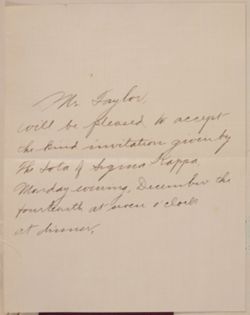 Mr. Taylor,
will be pleased to accept
the kind invitation given by
The Iota of Sigma Kappa
Monday evening, December the
fourteenth at seven o'clock
at dinner.